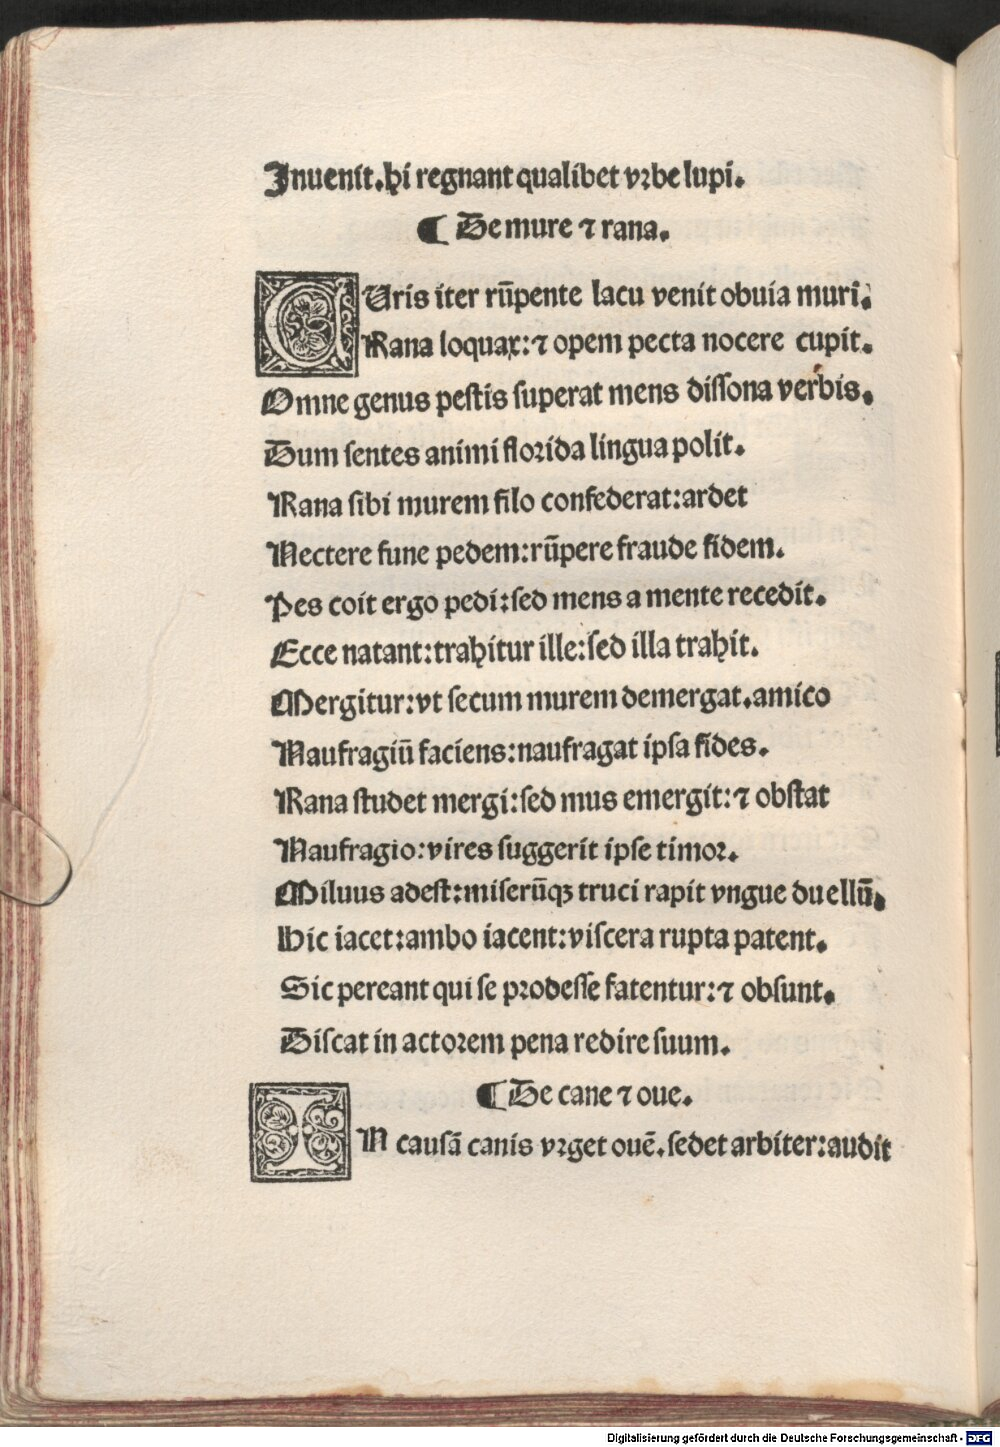 Inuenit.hi regnant qualibet vrbe lupi.
¶ De mure ⁊ rana.
CUris iter rũpente lacu venit obuia muri.
Rana loquax:⁊ opem pecta nocere cupit.
Omne genus pestis superat mens dissona verbis.
Dum sentes animi florida lingua polit.
Rana sibi murem filo confederat:ardet
Nectere fune pedem:rũpere fraude fidem.
Pes coit ergo pedi:sed mens a mente recedit.
Ecce natant:trahitur ille:sed illa trahit.
Mergitur:vt secum murem demergat.amico
Naufragiũ faciens:naufragat ipsa fides.
Rana studet mergi:sed mus emergit:⁊ obstat
Naufragio:vires suggerit ipse timor.
Miluus adest:miserũqꝫ truci rapit vngue duellũ.
Hic iacet:ambo iacent:viscera rupta patent.
Sic pereant qui se prodesse fatentur:⁊ obsunt.
Discat in actorem pena redire suum.
¶ De cane ⁊ oue.
IN causã canis vrget ouẽ.sedet arbiter:audit
Digitalisierung gefördert durch die Deutsche Forschungsgemeinschaft - DFG